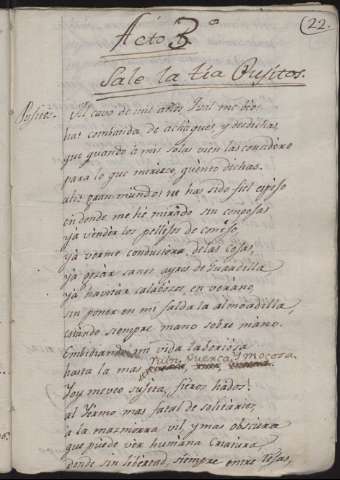 22.
Acto 3.º
Sale la tia Pusitos.
Al cavo de mis años,
has combatida de achaques, y desdichas,
que quando á mis solas bien las considero
para lo que merezco, quento dichas.
este gran mundo me ha sido fiel espejo
en donde me hé mirado sin
ya vender los pellejos de conejo,
ya verme conductora de las cosas,
ya gozar sanos ayres de
ya havitar calabozos en verano
sin poner en mi falda la almoadilla,
estando siempre mano sobre mano.
Embidiando mi vida laboriosa
hasta la mas ruin, puerca, y mocosa.
Hoy me veo sujeta, fieros hados!
al Yermo mas fatal de solitarios,
a la mazmorra vil, y mas obscura
que puede ver humana Criatura
donde sin libertad, siempre entre rejas,